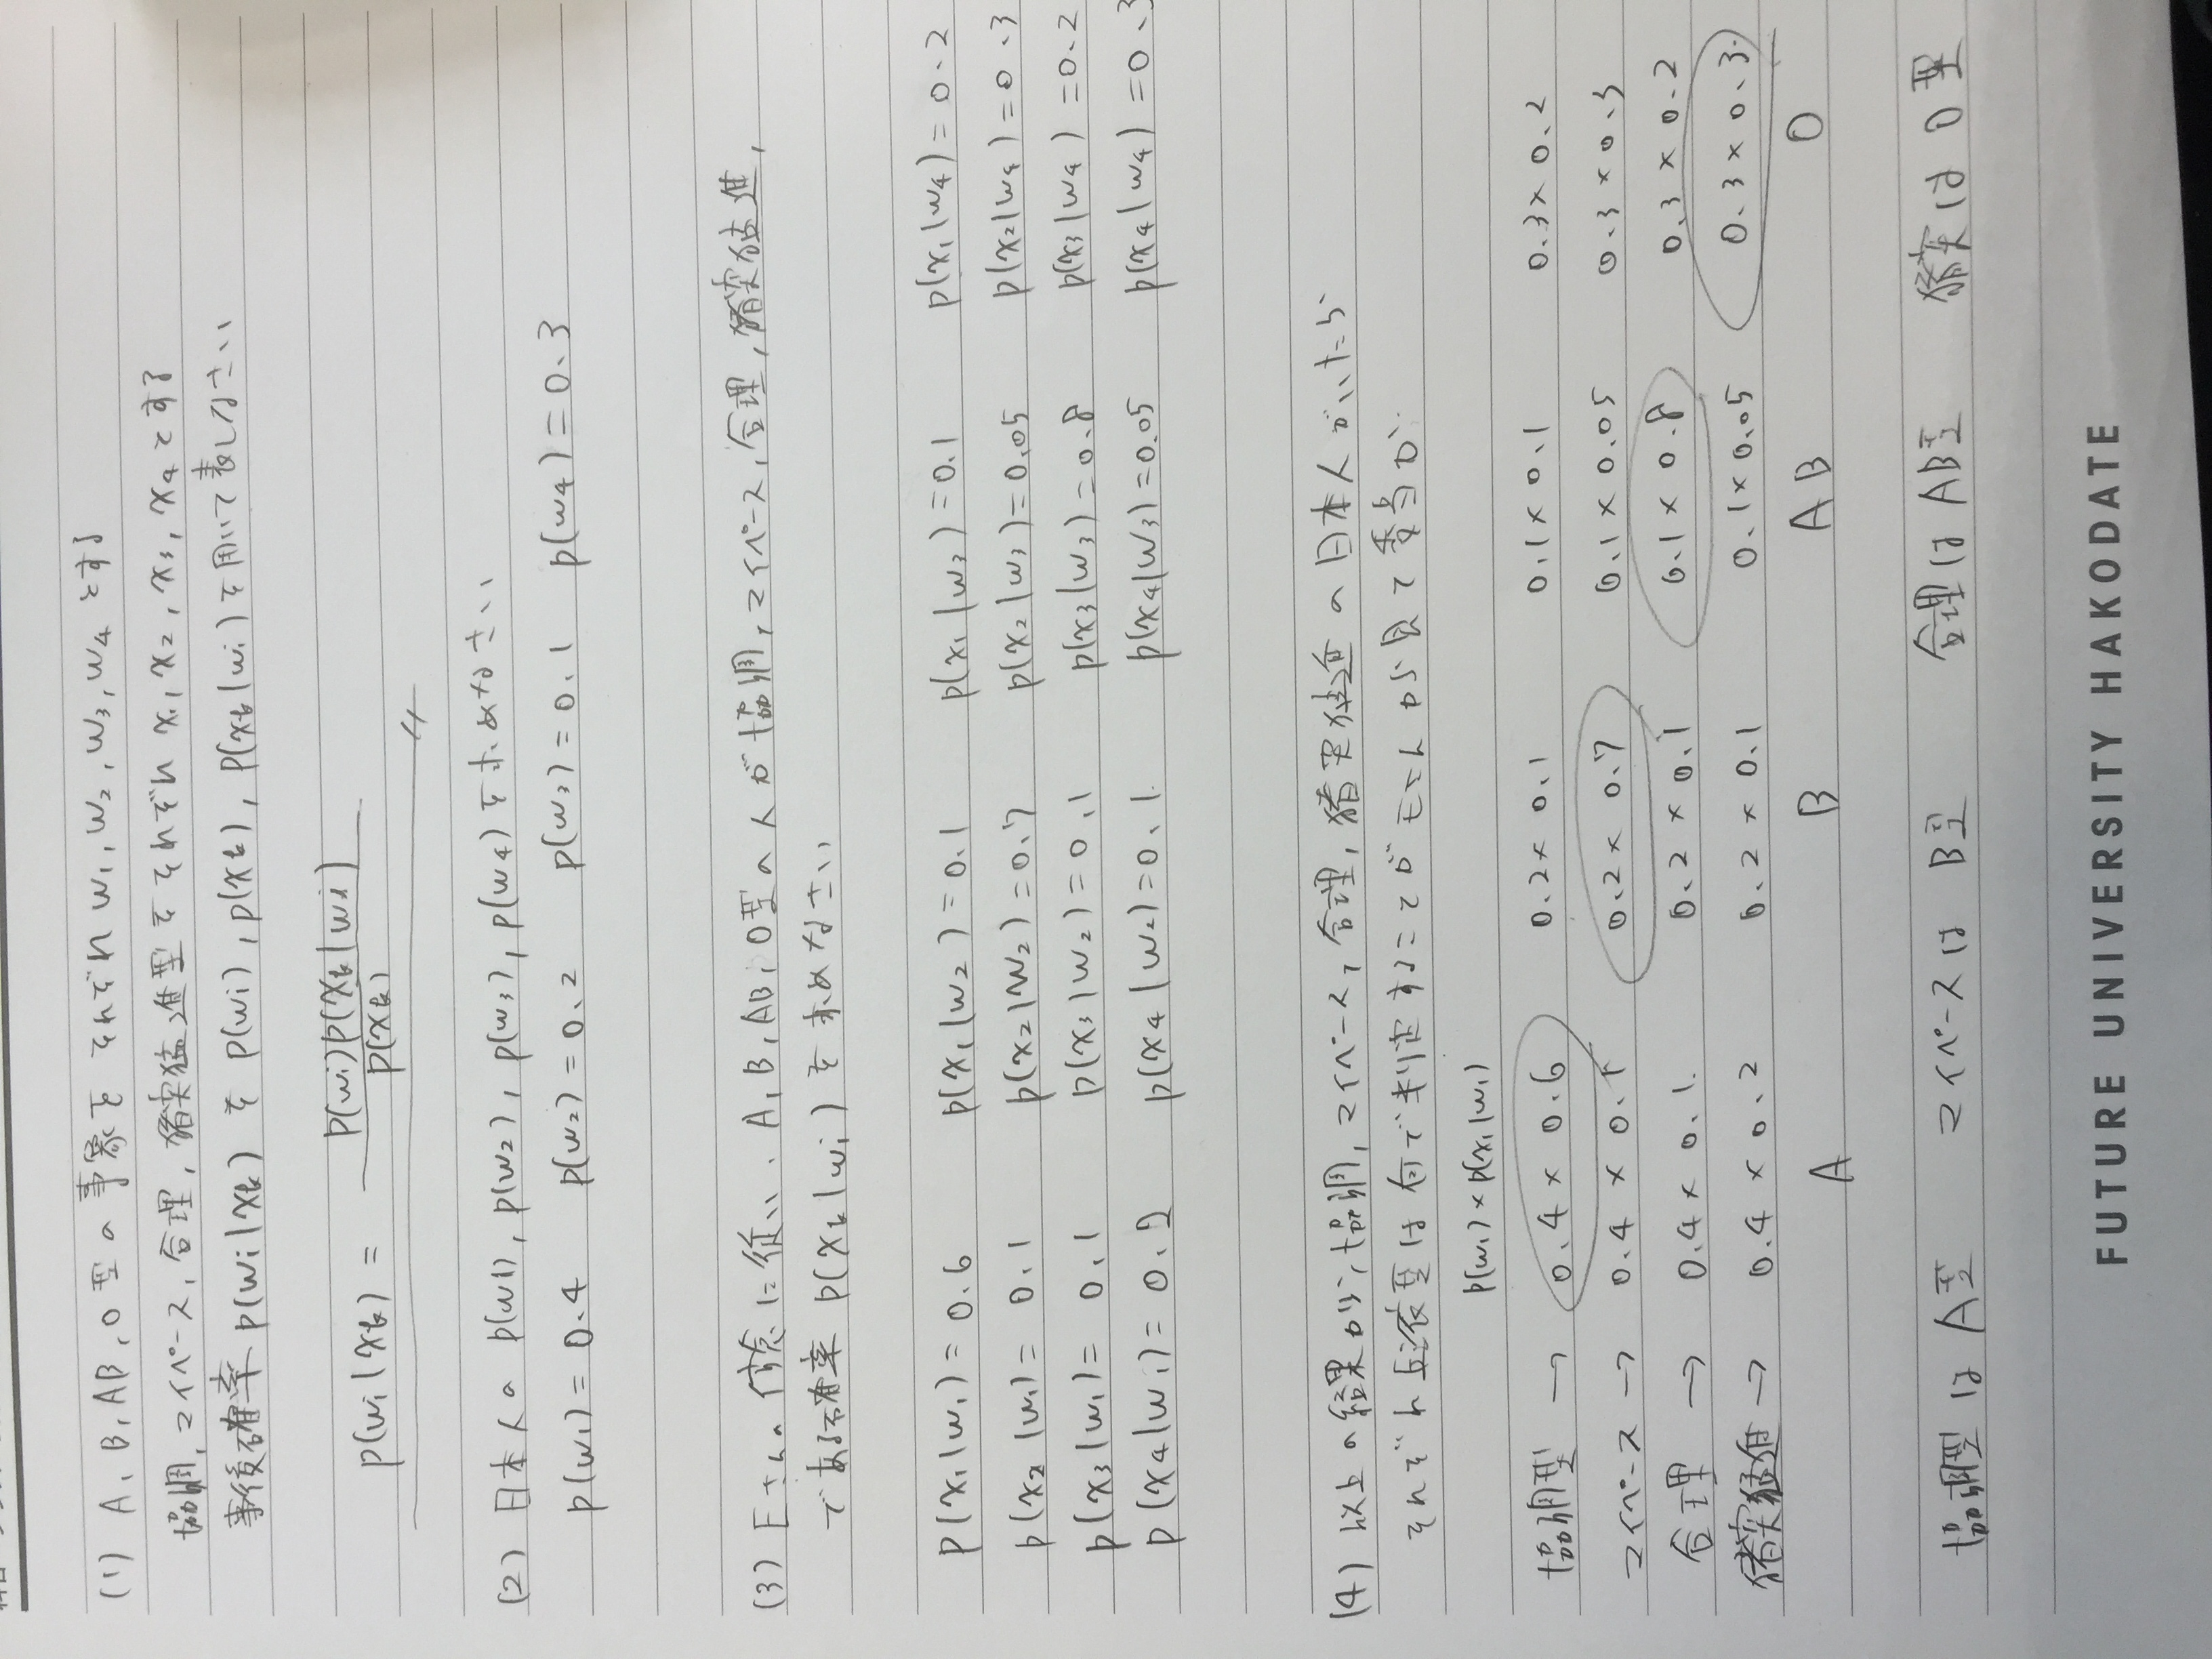 (1) A, B, AB, O型の事象をそれぞれ w₁, w₂, w₃, w₄ とする
協調, マイペース, 合理, 猪突猛進型をそれぞれ x₁, x₂, x₃, x₄ とする
事後確率 p(wi|xk) を p(wi), p(xk), p(xk|wi) を用いて表しなさい
p(wi|xk) = p(wi)p(xk|wi)
p(xk)
(2) 日本人の p(w1), p(w2), p(w3), p(w4) を求めなさい
p(w₁) = 0.4 p(w₂) = 0.2 p(w₃) = 0.1 p(w₄) = 0.3
(3) Eさんの信念に従い、A, B, AB, O型の人が協調, マイペース, 合理, 猪突猛進,
である確率 p(xk|wi) を求めなさい
p(x₁|w₁) = 0.6 p(x₁|w₂) = 0.1 p(x₁|w₃) = 0.1 p(x₁|w₄) = 0.2
p(x₂|w₁) = 0.1 p(x₂|w₂) = 0.7 p(x₂|w₃) = 0.05 p(x₂|w₄) = 0.3
p(x₃|w₁) = 0.1 p(x₃|w₂) = 0.1 p(x₃|w₃) = 0.8 p(x₃|w₄) = 0.2
p(x₄|w₁) = 0.2 p(x₄|w₂) = 0.1 p(x₄|w₃) = 0.05 p(x₄|w₄) = 0.3
(4) 以上の結果から, 協調, マイペース, 合理, 猪突猛進の日本人がいたら
それぞれ血液型は何で判定することがもっとも
p(w₁) × p(x₁|w₁)
協調型 → 0.4 × 0.6 0.2 × 0.1 0.1 × 0.1 0.3 × 0.2
マイペース → 0.4 × 0.1 0.2 × 0.7 0.1 × 0.05 0.3 × 0.3
合理 → 0.4 × 0.1 0.2 × 0.1 0.1 × 0.8 0.3 × 0.2
猪突猛進 → 0.4 × 0.2 0.2 × 0.1 0.1 × 0.05 0.3 × 0.3
A B AB O
協調型は A型 マイペースは B型 合理は AB型 猪突は O型
FUTURE UNIVERSITY HAKODATE